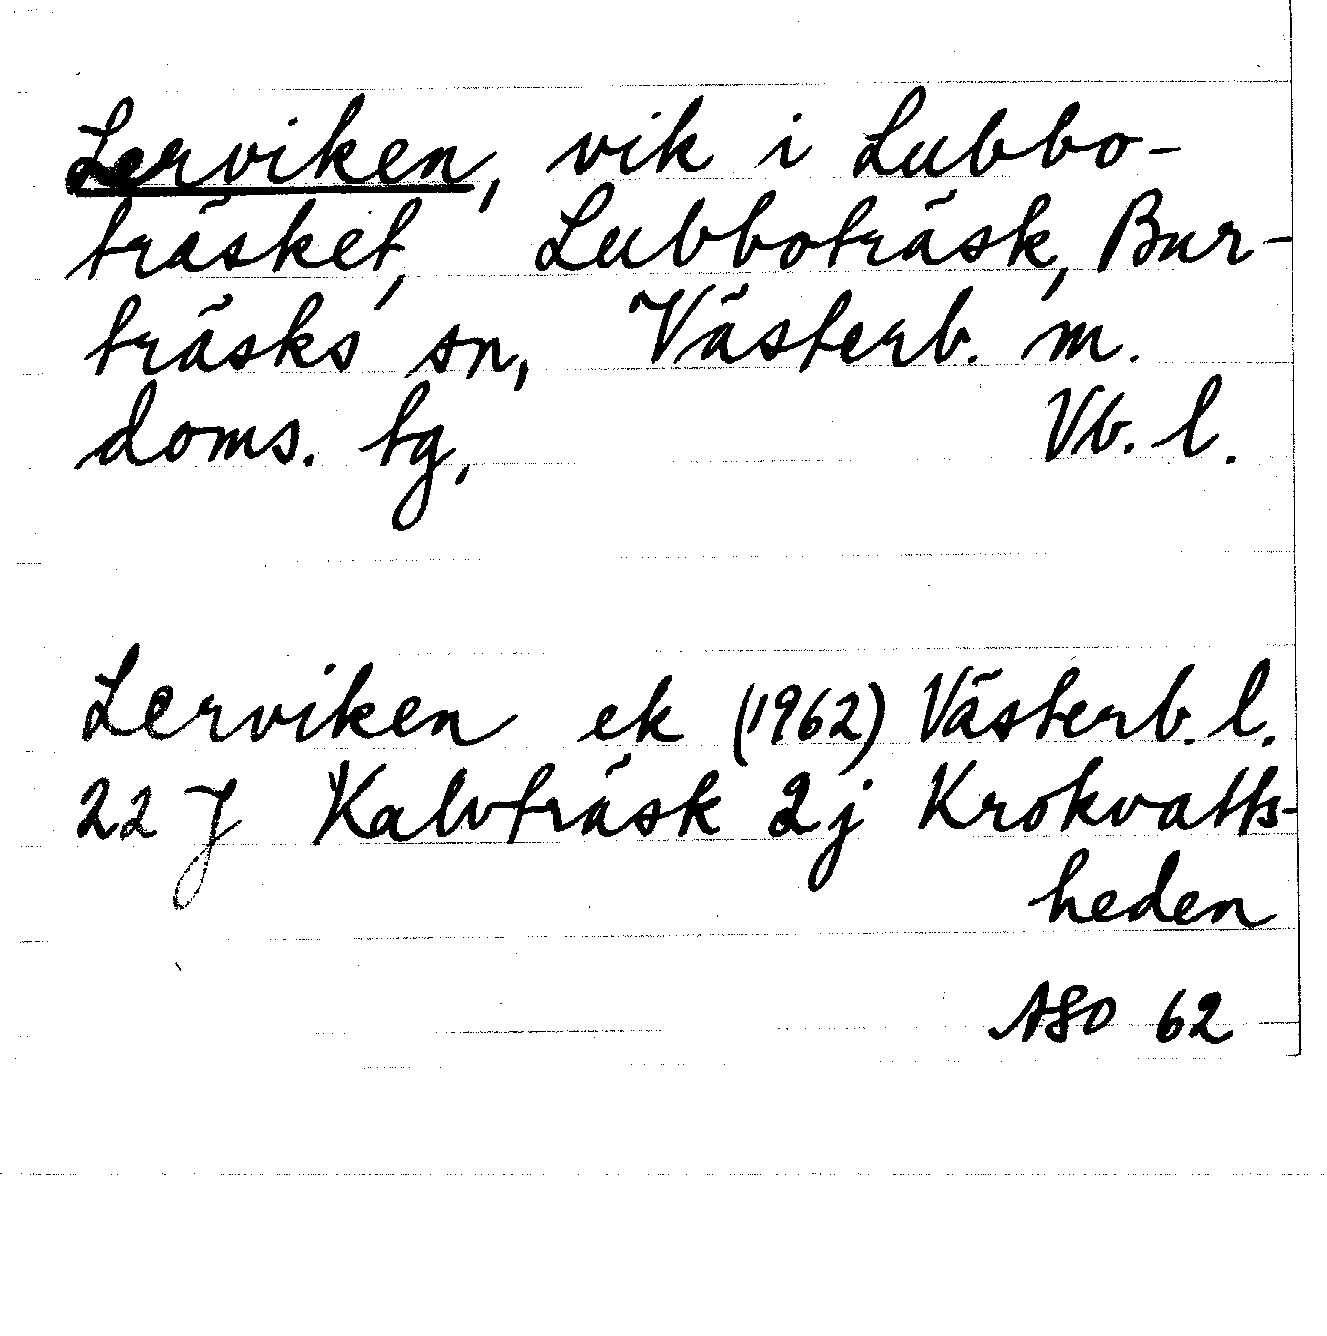 Lerviken, vik i Lubbo-
träsket, Lubboträsk, Bur-
träsks sn, Västerb. m.
doms. tg, Vb. l.
Lerviken ek (1962) Västerb. l.
22 J Kalvträsk 2j Krokvatts-
heden
ASO 62